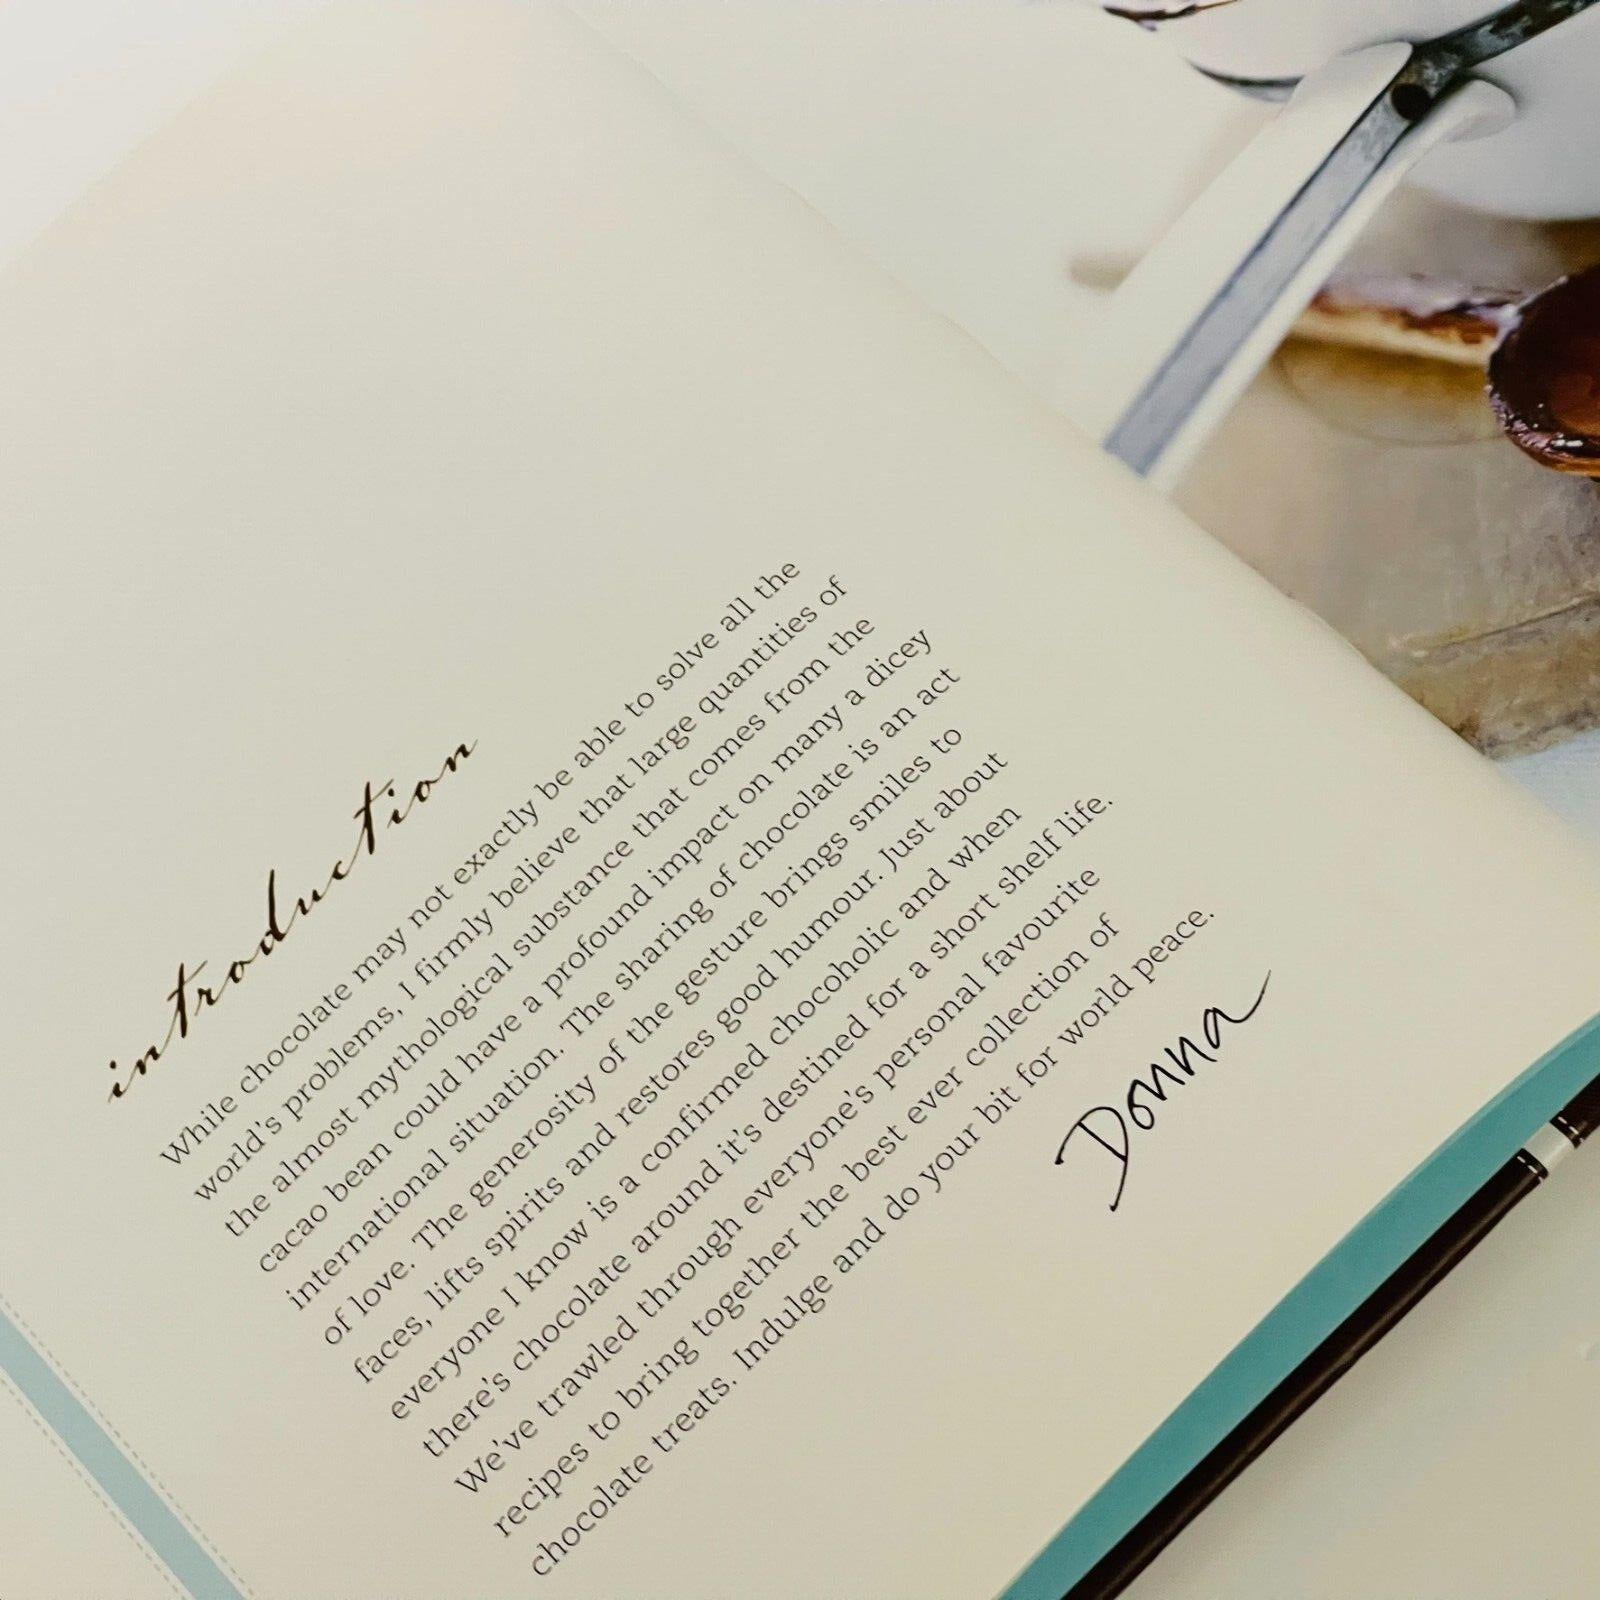 introduction
While chocolate may not exactly be able to solve all the
world's problems, I firmly believe that large quantities of
the almost mythological substance that comes from the
cacao bean could have a profound impact on many a dicey
international situation. The sharing of chocolate is an act
of love. The generosity of the gesture brings smiles to
faces, lifts spirits and restores good humour. Just about
everyone I know is a confirmed chocoholic and when
there's chocolate around it's destined for a short shelf life.
We've trawled through everyone's personal favourite
recipes to bring together the best ever collection of
chocolate treats. Indulge and do your bit for world peace.
Donna